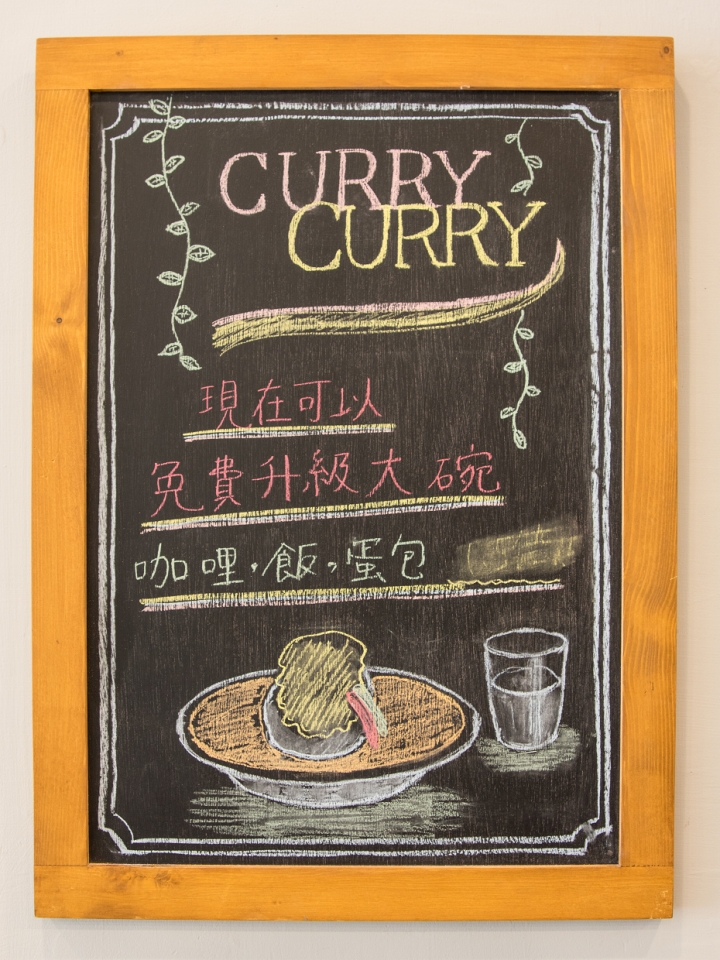 CURRY
CURRY
現在可以
免費升級大碗
咖哩·飯,蛋包